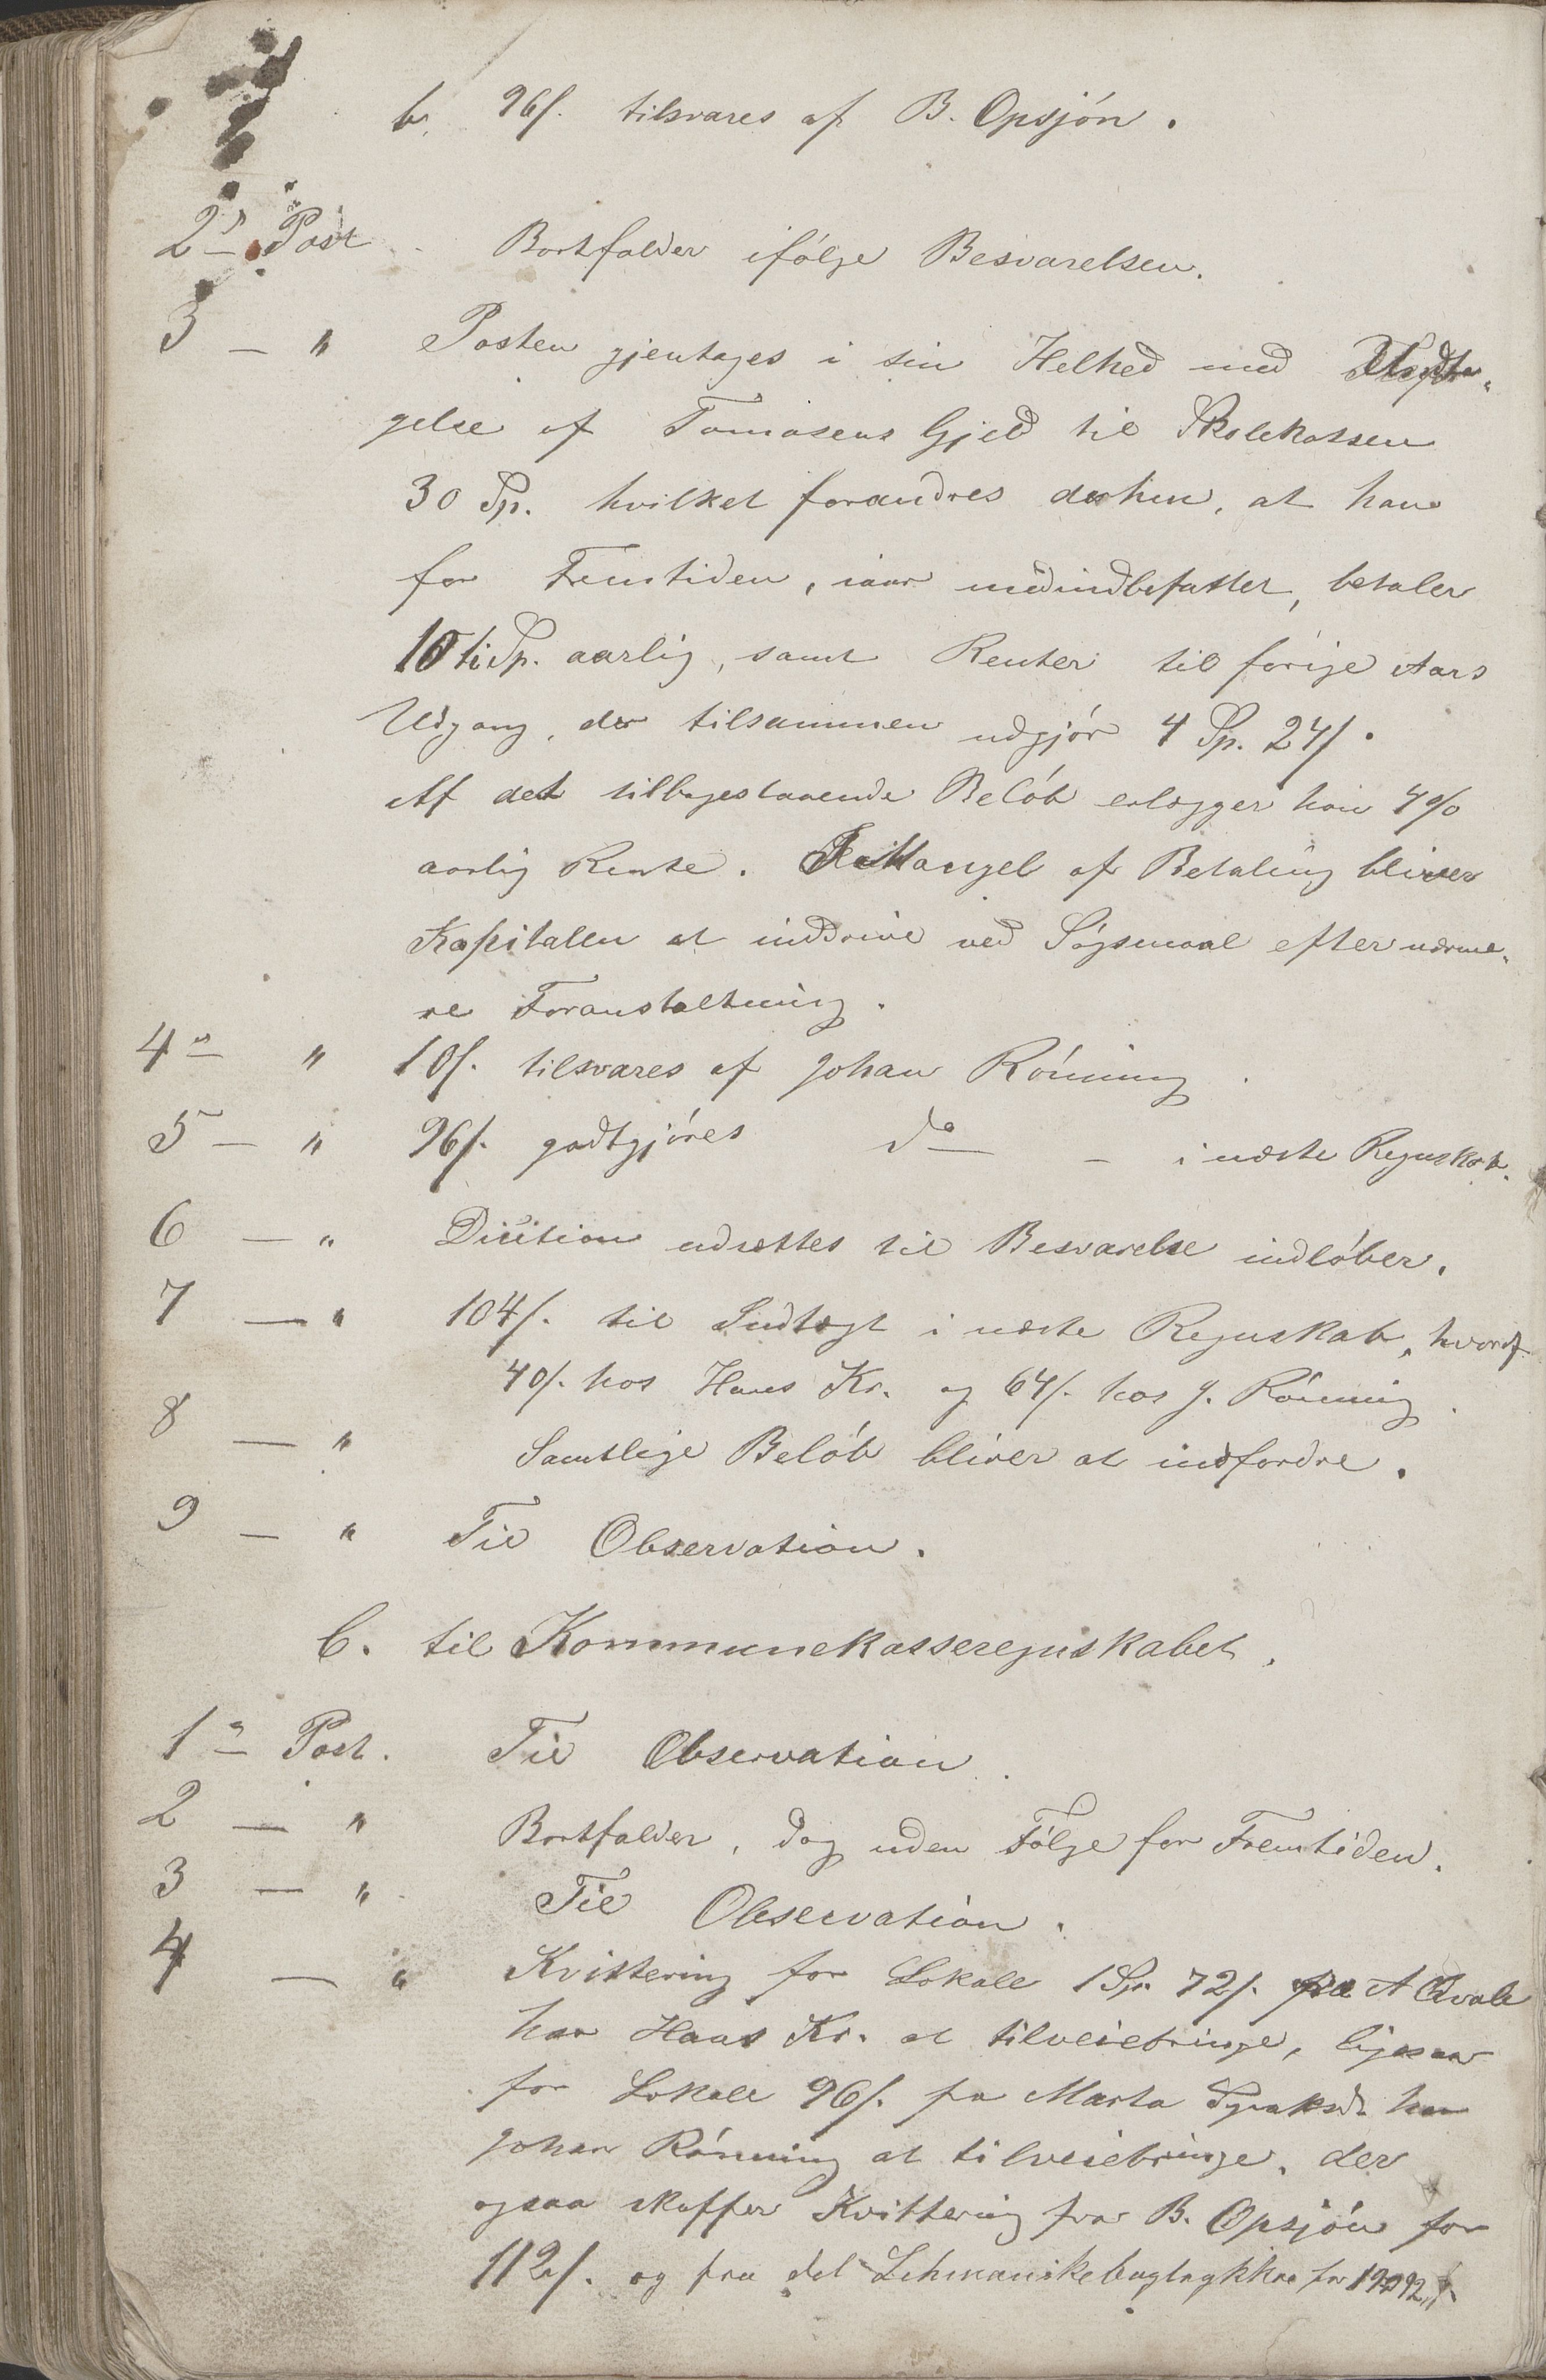 b. 96/. tilsvares af B. Opsjón.
2den Post - Bortfalder ifólge Besvarelsen.
3 - " Posten gjentages i sin Helhed med Undta-
gelse af Tomasens Gjeld til Skolekassen
30 Sp. hvilket forandres derhen, at han
for Fremtiden, iaar medindbefattet, betaler
10 ti Sp. aarlig, samt Renter til forige Aars
Udgang, der tilsammen udgjór 4 Sp. 24/.
Af det tilbagestaaende Belób erlægger han 4%
aarlig Rente. I Mangel af Betaling bliver
Kapitalen at inddrive ved Sógsmaal efter nærme-
re Foranstaltning.
4de " 10/. tilsvares af Johan Rónning.
5 - " 96/. godtgjóres do - i næste Regnskab.
6 - " Decition udsættes til Besvarelse indlóber.
7 - " 104/. til Indtægt i næste Regnskab, hvoraf
40/. hos Hans Kr. og 64/. hos J. Rónning.
8 - " Samtlige Belób bliver at indfordre.
9 - " Til Observation.
C. til Kommunekasseregnskabet.
1ste Post. Til Observation.
2 - " Bortfalder, dog uden Fólge for Fremtiden.
3 - " Til Observation.
4 - " Kvittering for Lokale 1 Sp. 72/. fra A Qvale
har Hans Kr. at tilveiebringe, ligesaa
for Lokale 96/. fra Marta har
Johan Rónning at tilveiebringe, der
ogsaa skaffer Kvittering fra B. Opsjón for
112/. og fra det Lehmanskebogtrykkeri for